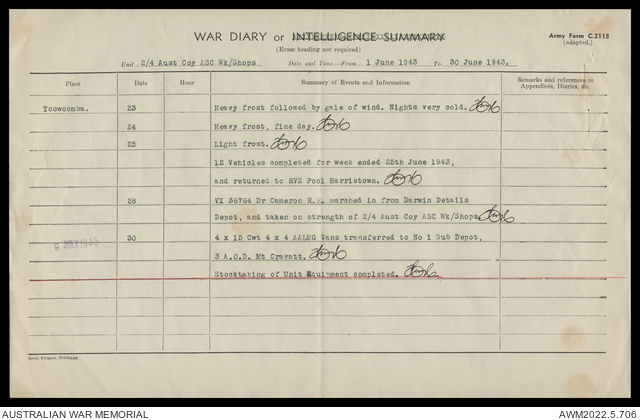 WAR DIARY or INTELLIGENCE SUMMARY
(Erase heading not required)
Army Form C.2118
(adapted.)
Unit 2/4 Aust Coy ASC Wk/Shops Date and Time—From 1 June 1943 To 30 June 1943.
Place Date Hour Summary of Events and Information Remarks and references to Appendices, Diaries, &c.
Toowoomba. 23 Heavy frost followed by gale of wind. Nights very cold.
24 Heavy frost, fine day.
25 Light frost.
12 Vehicles completed for week ended 25th June 1943,
and returned to RVS Pool Harristown.
28 VX 36764 Dr Cameron R.K. marched in from Darwin Details
Depot, and taken on strength of 2/4 Aust Coy ASC Wk/Shops.
30 4 x 15 Cwt 4 x 4 AALMG Vans transferred to No 1 Sub Depot,
JULY 1943
3 A.O.D. Mt Cravatt.
Stocktaking of Unit Equipment completed.
Govt Printer, Brisbane
AUSTRALIAN WAR MEMORIAL AWM2022.5.706